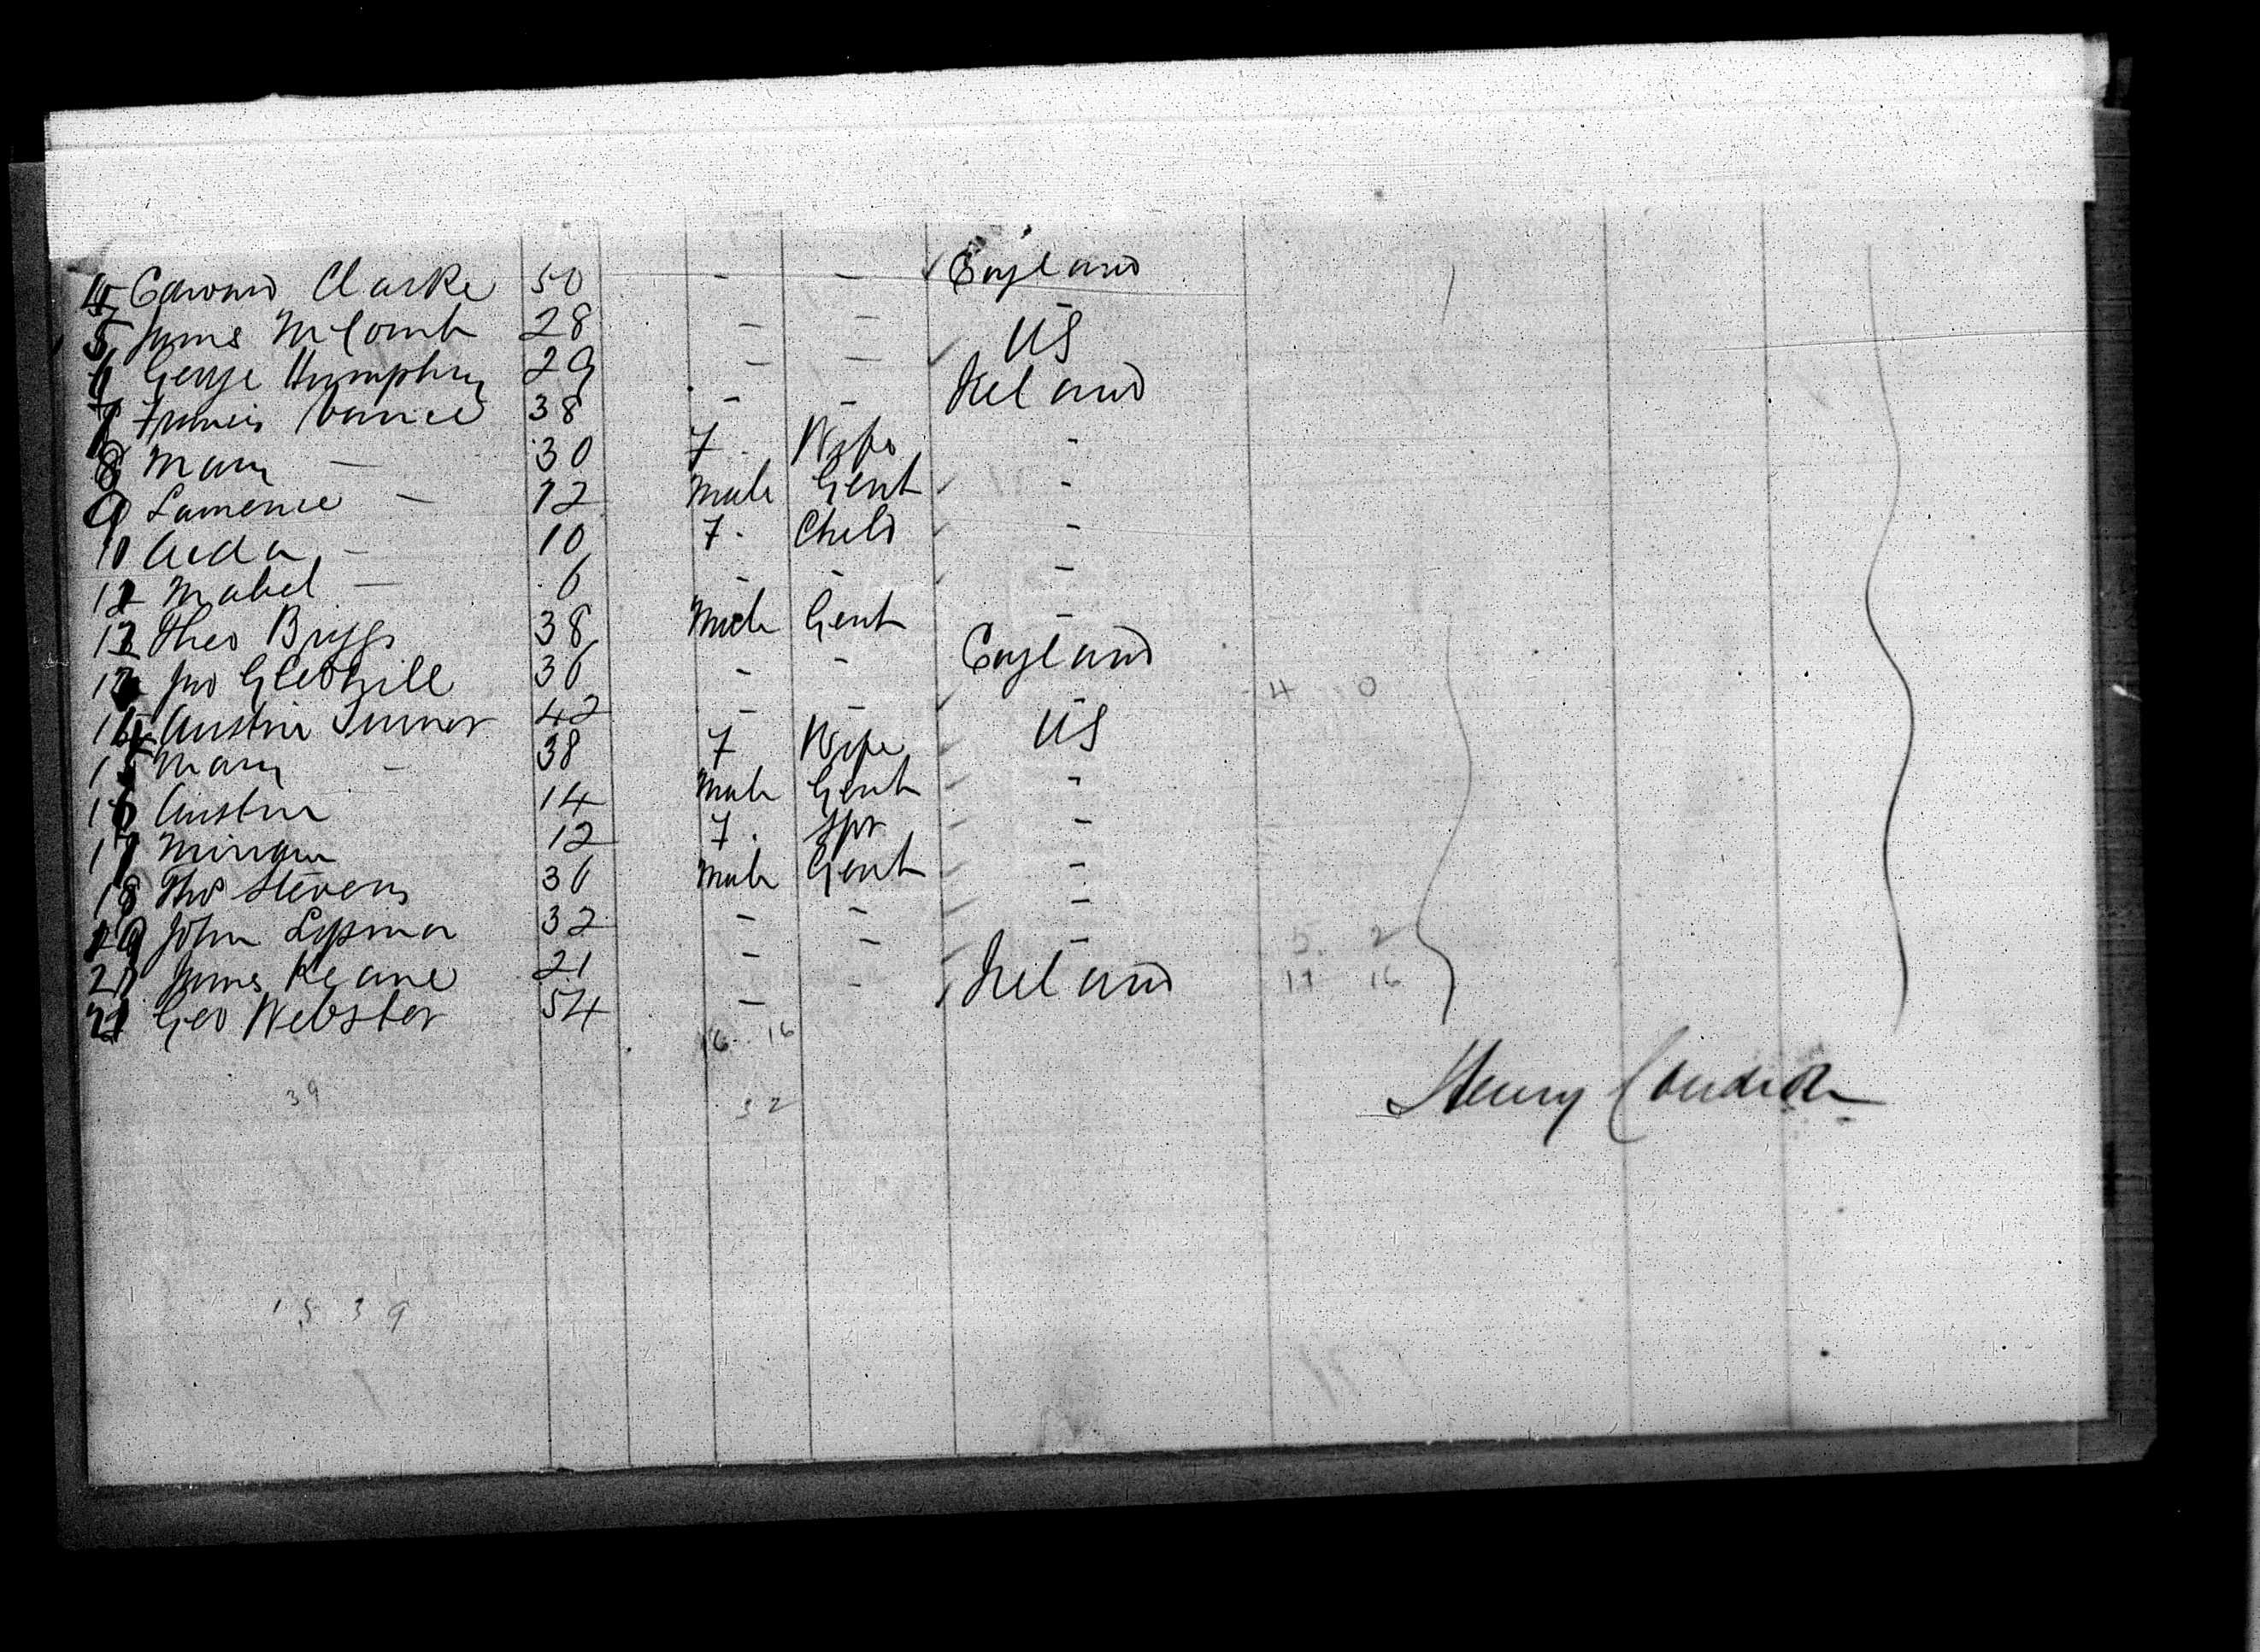 4 Edward Clarke 50 - - England
5 James McComb 28 - - US
6 George Humphrey 29 - - Ireland
7 Francis Vance 38 - -
8 Mary — 30 F. Wife "
9 Lawrence — 12 Male Gent "
10 Aida — 10 F. Child "
Mabel — 6 - - "
Theo Briggs 38 Male Gent "
Jno Gledhill 36 - - England
14 Austin Turner 42 - - "
Mary — 38 F Wife US
16 Austin 14 Male Gent "
17 Miriam 12 F. Spr "
18 Thos Stevens 36 Male Gent "
John 32 - - "
James Keane 21 - - "
Geo Webster 54 - - Ireland
4 0
5. 2
11 16
16. 16
Henry
39
32
1539